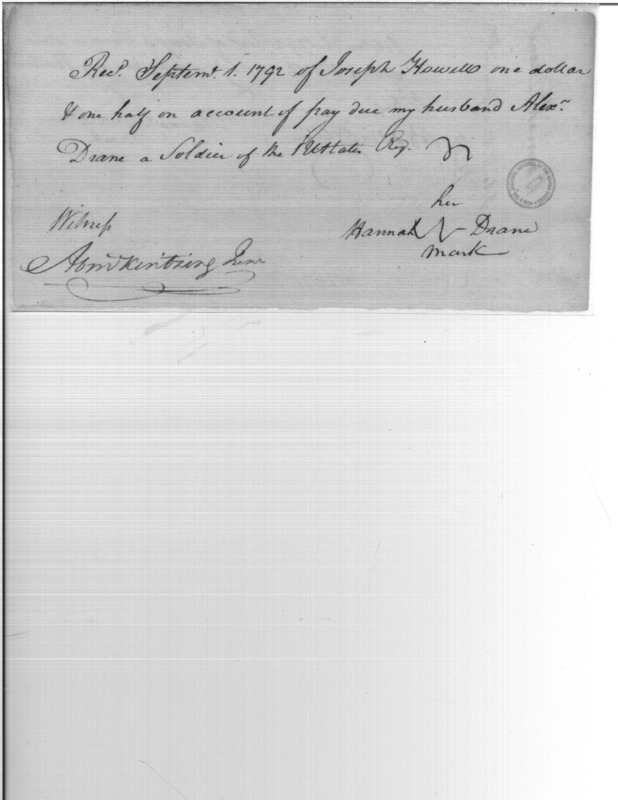 Recd. Septemr. 1. 1792 of Joseph Howell one dollar
& one half on account of pay due my husband Alexr.
Drane a Soldier of the UStates
her
Witness
Hannah Drane
mark
Junr